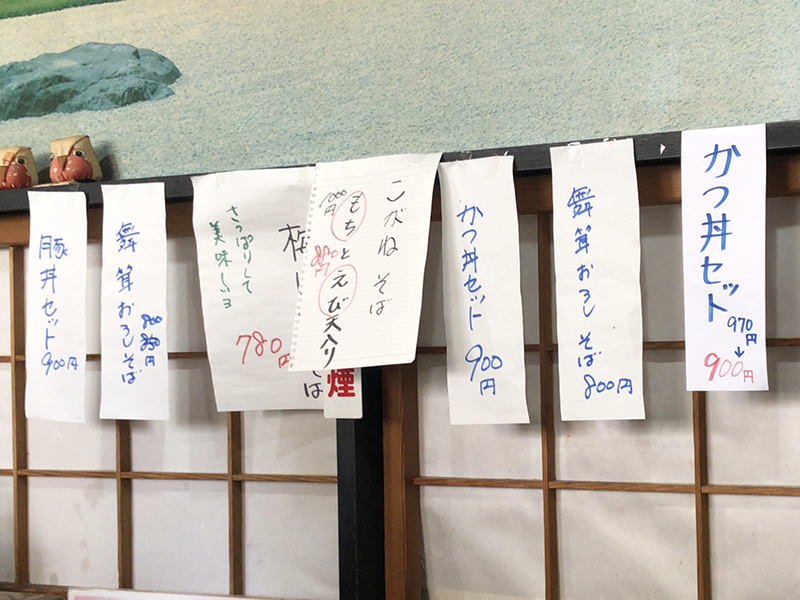 かつ丼セット
970円
↓
900円
舞茸おろしそば
800円
かつ丼セット
900円
こがねそば
もちとえび天入り
1000円
880円
さっぱりして
美味しいヨ
780円
そば
煙
舞茸おろしそば
豚丼セット
900円